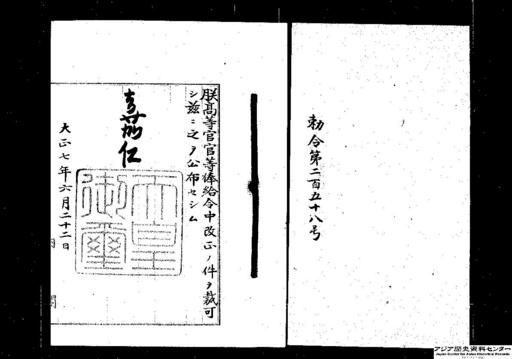 勅令第二百五十八号
朕高等官官等俸給令中改正ノ件ヲ裁可
シ茲ニ之ヲ公布セシム
嘉仁
天皇御璽
大正七年六月二十二日
内閣
アジア歴史資料センター
Japan Center for Asian Historical Records